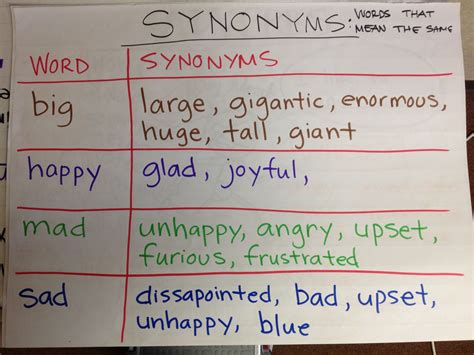 SYNONYMS: WORDS THAT
MEAN THE SAME
WORD SYNONYMS
big large, gigantic, enormous,
huge, tall, giant
happy glad, joyful,
mad unhappy, angry, upset,
furious, frustrated
sad dissapointed, bad, upset,
unhappy, blue